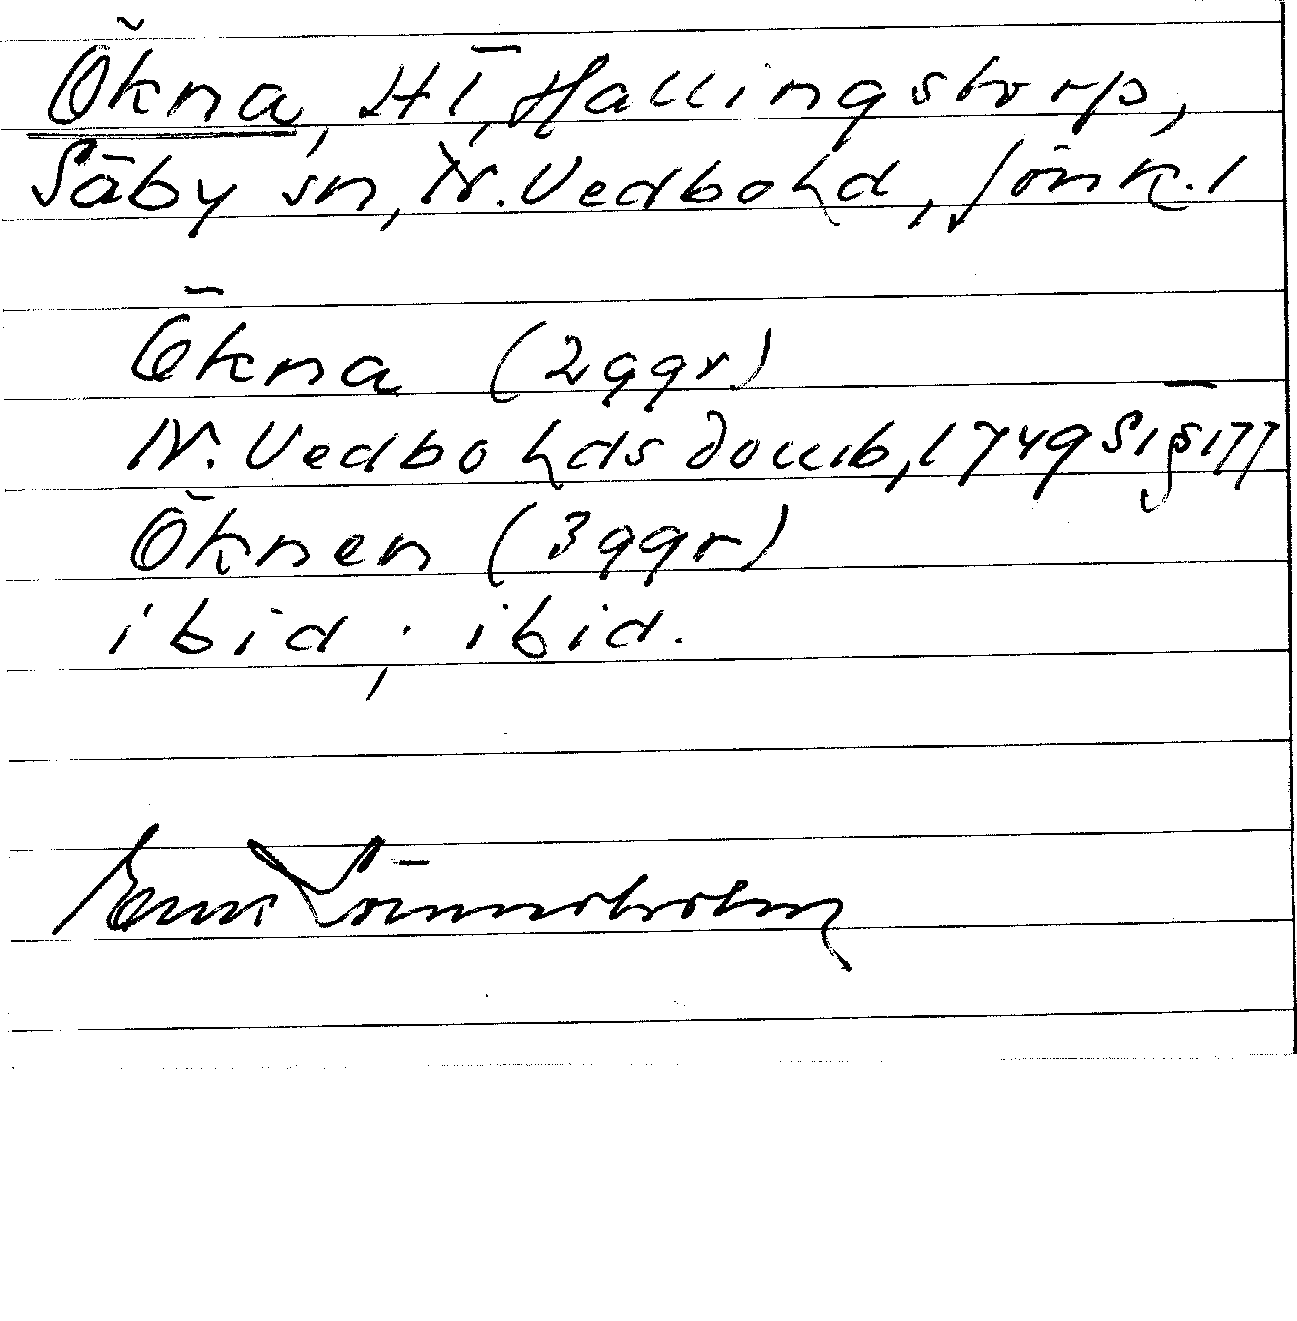 Ökna, HT, Hallingstorp,
Säby sn, N. Vedbohd, Jönk. l
Ökna (2 ggr)
N. Vedbohds domb, 1749 St § 177
Öknen (3 ggr)
ibid; ibid.
Lönnerholm